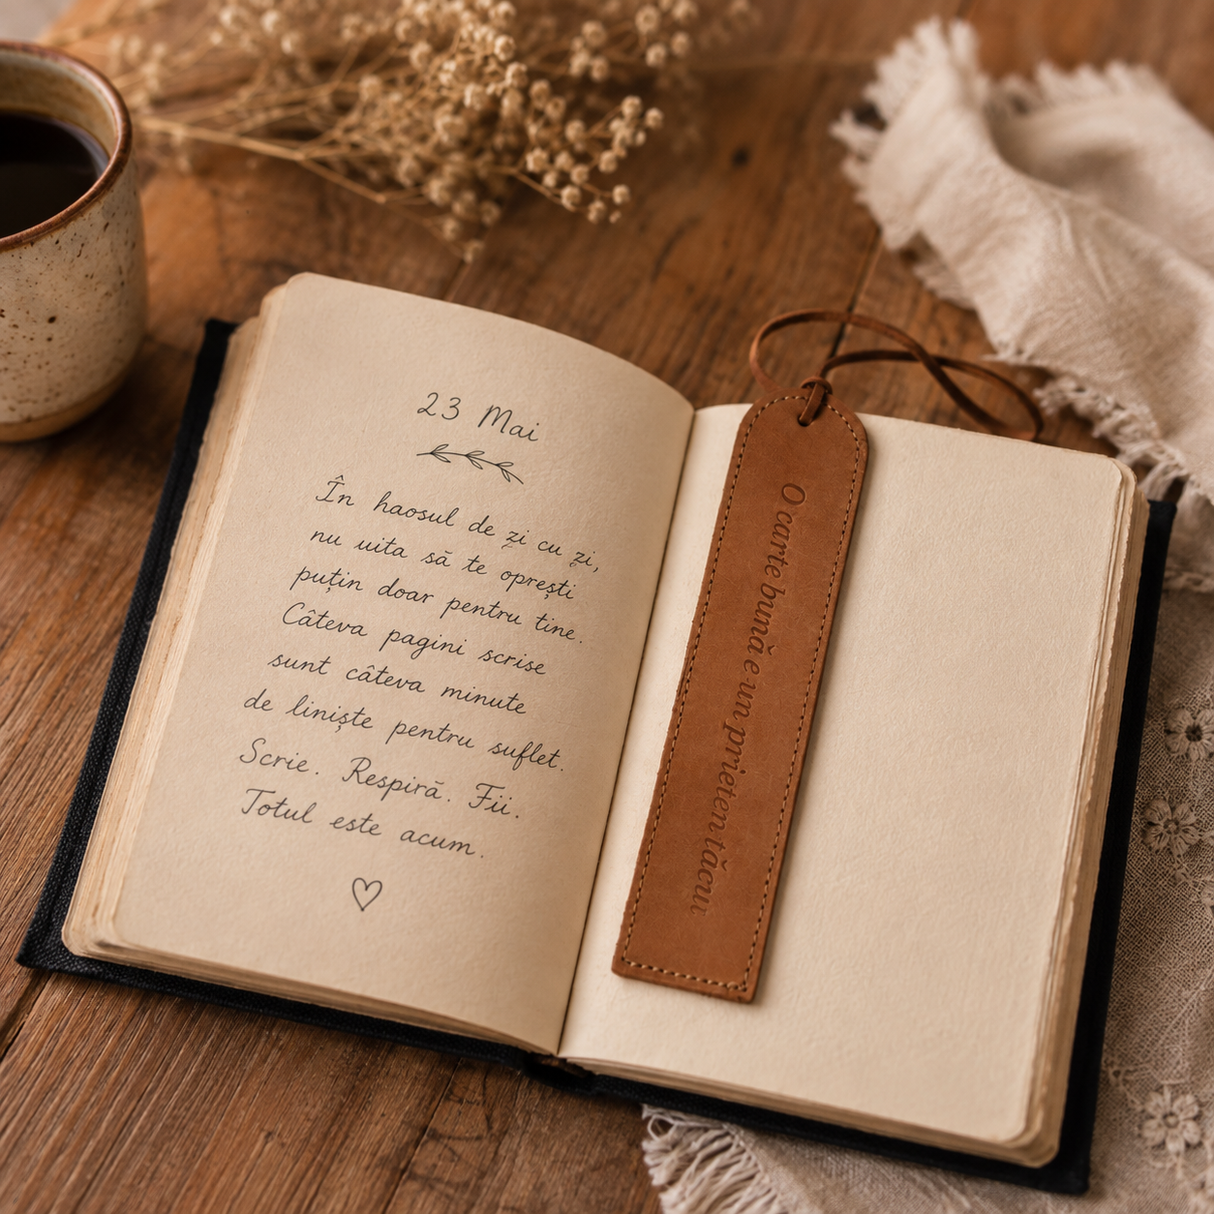 23 Mai
În haosul de zi cu zi,
nu uita să te oprești
puțin doar pentru tine.
Câteva pagini scrise
sunt câteva minute
de liniște pentru suflet.
Scrie. Respiră. Fii.
Totul este acum.
O carte bună e un prieten tăcut